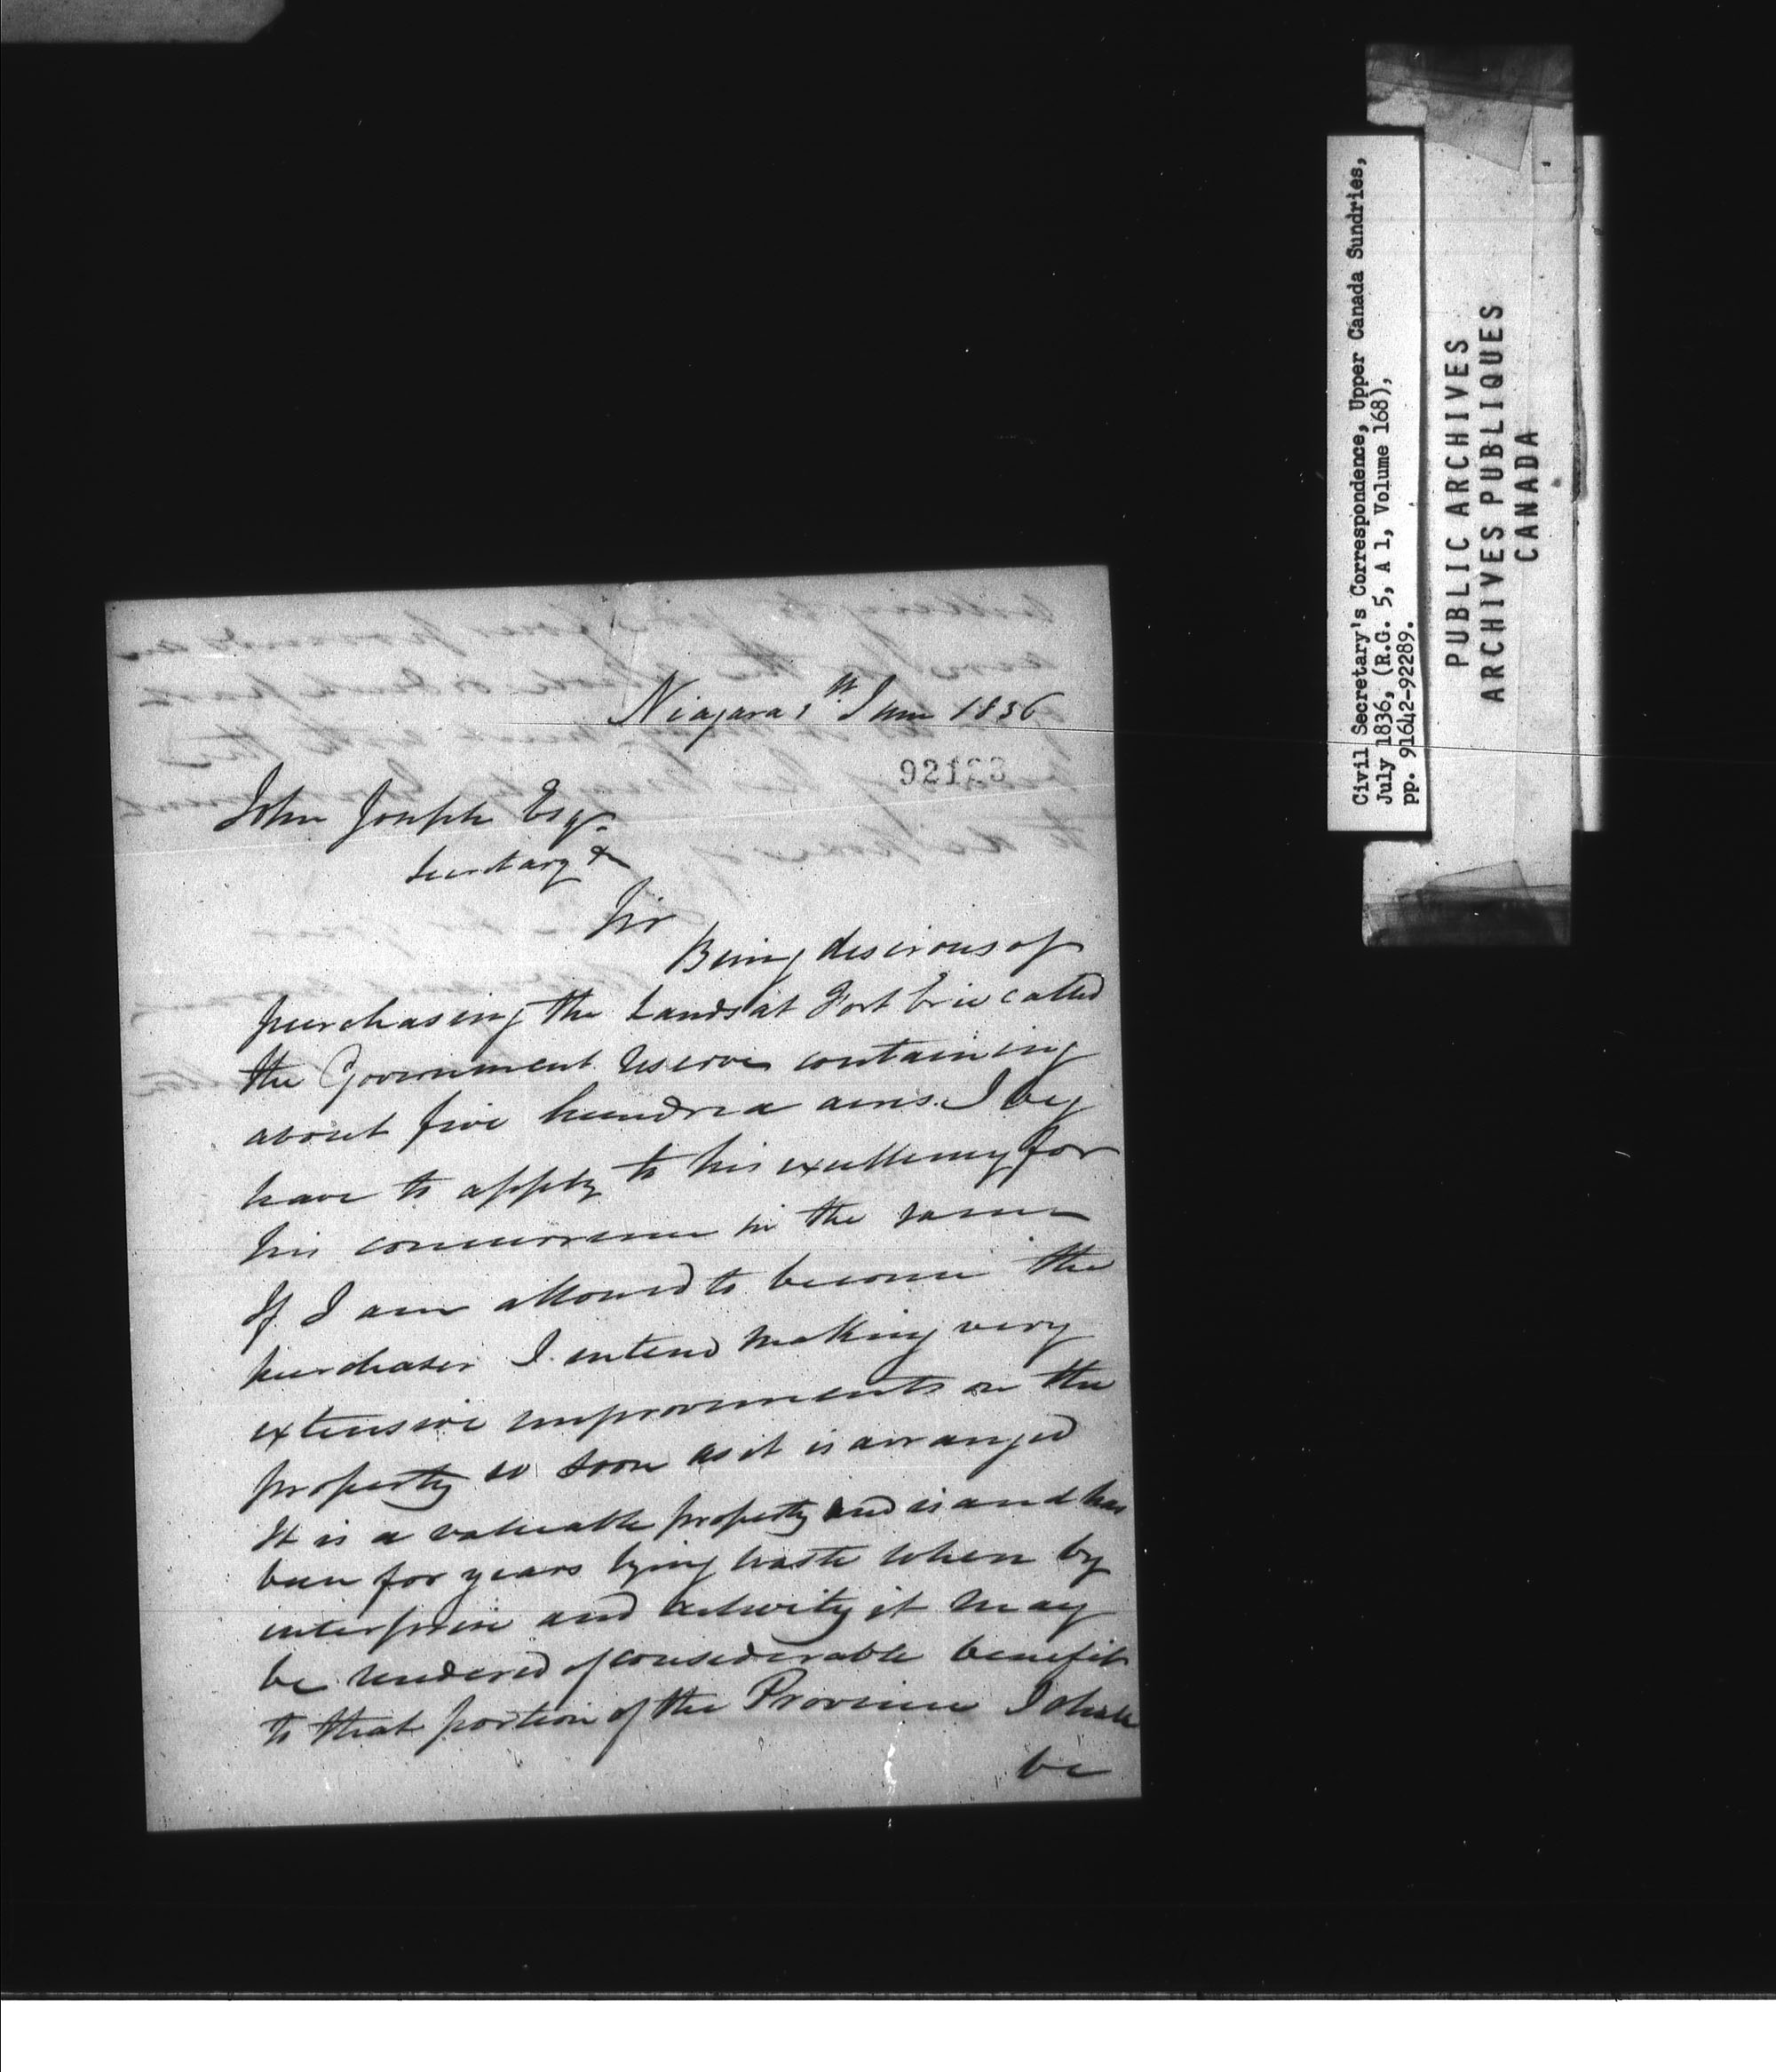 Niagara 1st June 1836
92123
John Joseph Esqr
Secretary &
Sir
Being desirous of
purchasing the Lands at Fort Erie called
the Government reserve containing
about five hundred acres. I beg
leave to apply to his excellency for
his concurrence in the same
If I am allowed to become the
purchaser I intend making very
extensive improvements on the
property so soon as it is arranged
It is a valuable property and is and has
been for years lying waste when by
interprise and activity it may
be rendered of considerable benefit
to that portion of the Province I shall
be
Civil Secretary's Correspondence, Upper Canada Sundries,
July 1836, (R.G. 5, A 1, Volume 168),
pp. 91642-92289.
PUBLIC ARCHIVES
ARCHIVES PUBLIQUES
CANADA